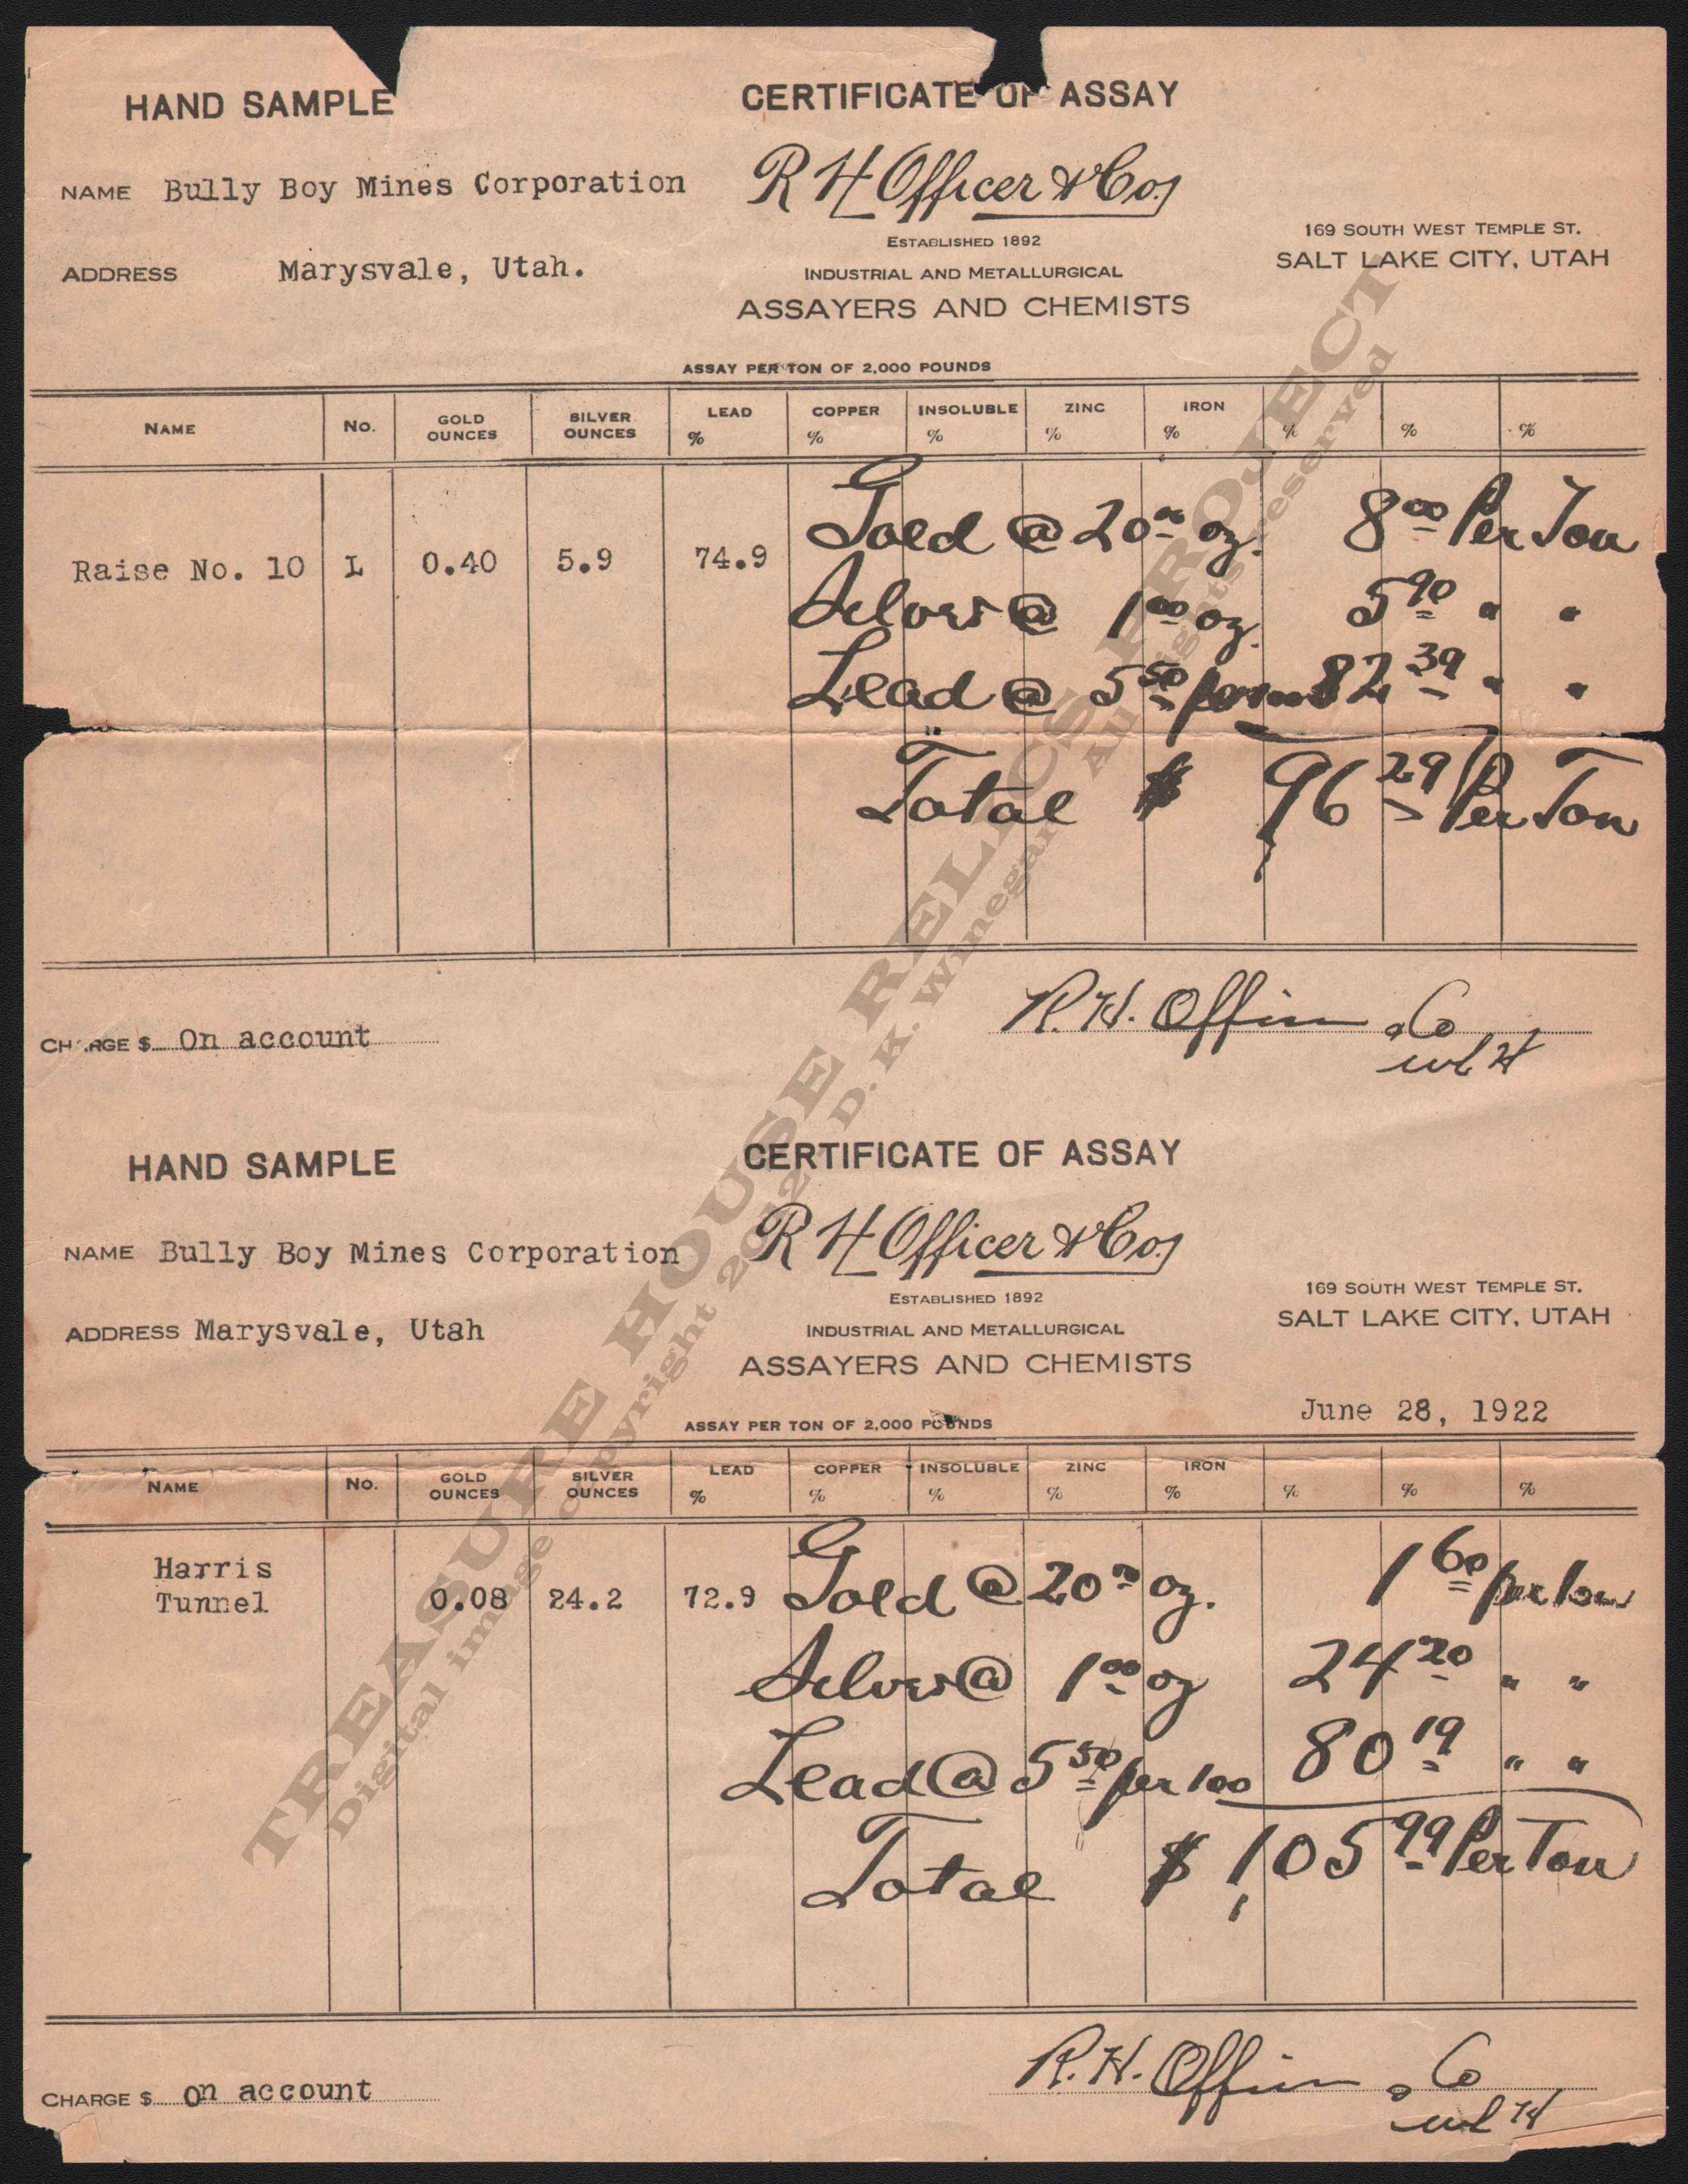 HAND SAMPLE
CERTIFICATE OF ASSAY
NAME Bully Boy Mines Corporation
R H Officer & Co.
ESTABLISHED 1892
169 SOUTH WEST TEMPLE ST.
ADDRESS Marysvale, Utah.
INDUSTRIAL AND METALLURGICAL
SALT LAKE CITY, UTAH
ASSAYERS AND CHEMISTS
ASSAY PER TON OF 2,000 POUNDS
NAME No. GOLD OUNCES SILVER OUNCES LEAD % COPPER % INSOLUBLE % ZINC % IRON % % % %
Raise No. 10 L 0.40 5.9 74.9
Gold @ 20 00 oz. 8 00 Per Ton
Silver @ 1 00 oz. 5 90 " "
Lead @ 5 50 82 39 " "
Total $ 96 29 Per Ton
CHARGE $ On account
R. H. Officer & Co
HAND SAMPLE
CERTIFICATE OF ASSAY
NAME Bully Boy Mines Corporation
R H Officer & Co.
ESTABLISHED 1892
169 SOUTH WEST TEMPLE ST.
ADDRESS Marysvale, Utah
INDUSTRIAL AND METALLURGICAL
SALT LAKE CITY, UTAH
ASSAYERS AND CHEMISTS
June 28, 1922
ASSAY PER TON OF 2,000 POUNDS
NAME No. GOLD OUNCES SILVER OUNCES LEAD % COPPER % INSOLUBLE % ZINC % IRON % % % %
Harris
Tunnel 0.08 24.2 72.9
Gold @ 20 00 oz. 1 60 per ton
Silver @ 1 00 oz 24 20 " "
Lead @ 5 50 per 100 80 19 " "
Total $ 105 99 Per Ton
CHARGE $ On account
R. H. Officer & Co
TREASURE HOUSE RELICS PROJECT
Digital image copyright 2012 D. K. Winegar All rights reserved